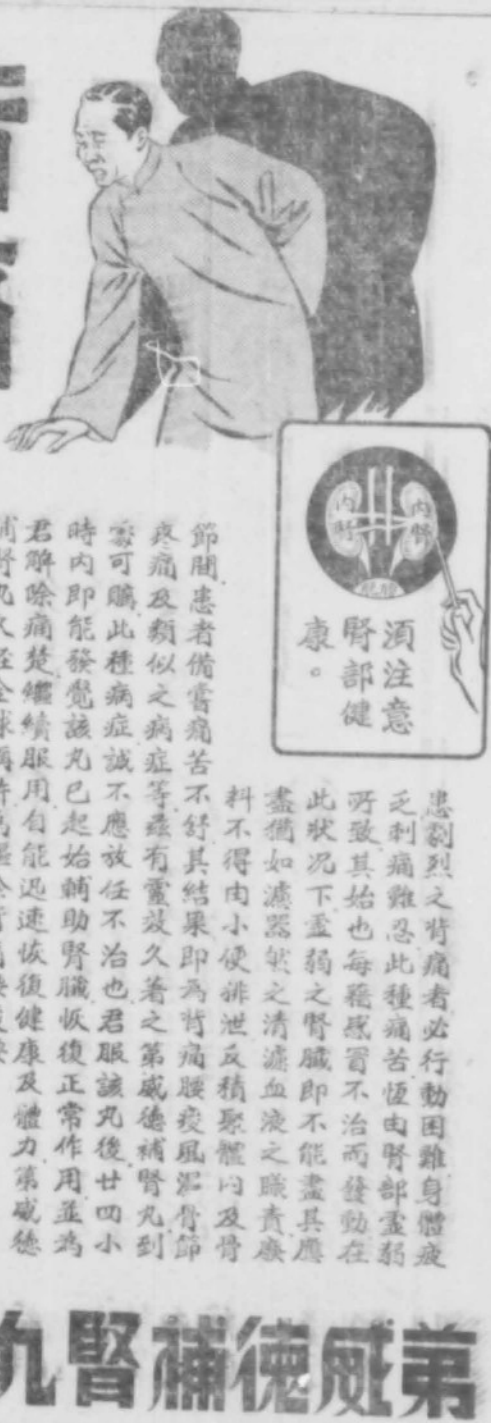 內腎
內腎
膀胱
須注意
腎部健
康。
患劇烈之背痛者必行動困難身體疲
乏刺痛難忍此種痛苦恆由腎部虛弱
所致其始也每藉感冒不治而發動在
此狀況下虛弱之腎臟即不能盡其應
盡猶如濾器然之清濾血液之職責廢
料不得由小便排泄反積聚體內及骨
節間患者備嘗痛苦不舒其結果即為背痛腰痠風濕骨節
疼痛及類似之病症等雖有靈效久著之第威德補腎丸到
處可購此種病症誠不應放任不治也君服該丸後廿四小
時內即能發覺該丸已起始輔助腎臟恢復正常作用並為
君解除痛楚繼續服用自能迅速恢復健康及體力第威德
補腎丸久經全球稱許為
第威德補腎丸